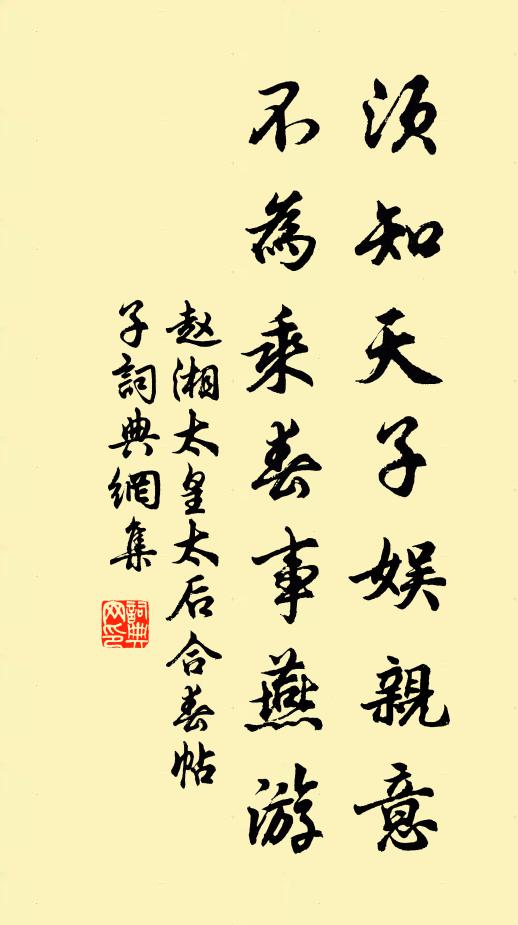 須知天子娱親意
不為乘春事燕游
赵湘太皇太后合春帖
子詞典網集
詞典網印